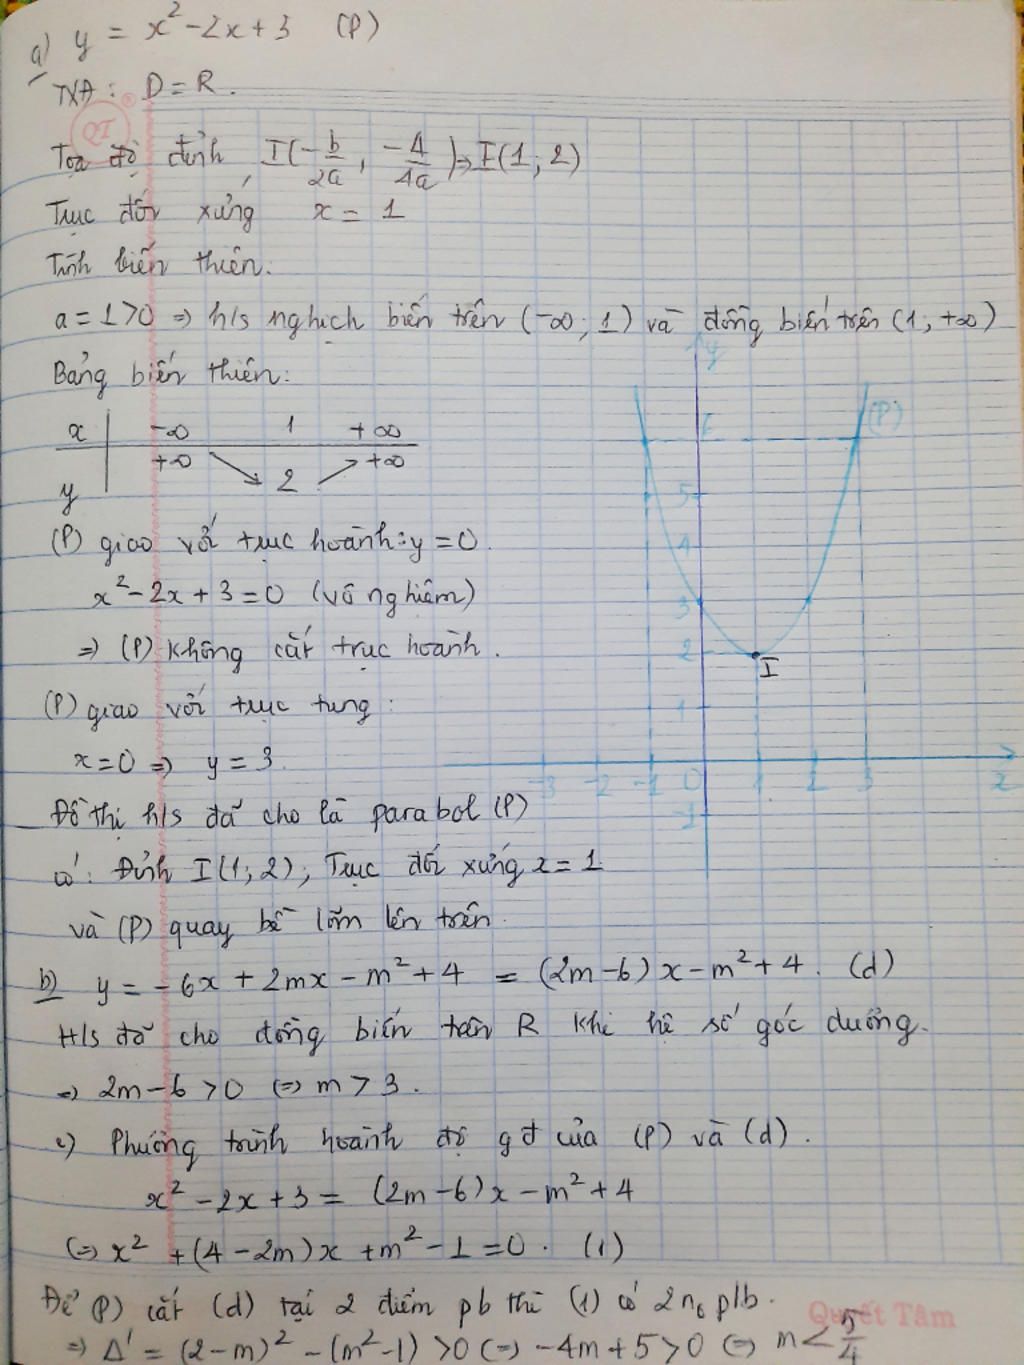 a) y = x² - 2x + 3 (P)
TXĐ: D = R.
QT ®
Toạ độ đỉnh I(-b/2a, -Δ/4a) ⇒ I(1; 2)
Trục đối xứng x = 1
Tính biến thiên.
a = 1 > 0 ⇒ h/s nghịch biến trên (-∞; 1) và đồng biến trên (1; +∞)
Bảng biến thiên:
x -∞ 1 +∞
y +∞ 2 +∞
y
(P)
6
5
4
3
2
I
1
-3 -2 -1 0 1 2 3 x
-1
(P) giao với trục hoành: y = 0.
x² - 2x + 3 = 0 (vô nghiệm)
⇒ (P) không cắt trục hoành.
(P) giao với trục tung:
x = 0 ⇒ y = 3.
Đồ thị h/s đã cho là parabol (P)
có: Đỉnh I(1; 2), Trục đối xứng x = 1
và (P) quay bề lõm lên trên.
b) y = -6x + 2mx - m² + 4 = (2m-6)x - m² + 4. (d)
H/s đã cho đồng biến trên R khi hệ số góc dương.
⇒ 2m - 6 > 0 ⇔ m > 3.
c) Phương trình hoành độ gđ của (P) và (d).
x² - 2x + 3 = (2m-6)x - m² + 4
⇔ x² + (4 - 2m)x + m² - 1 = 0. (1)
Để (P) cắt (d) tại 2 điểm pb thì (1) có 2 n₀ p/b.
Quyết Tâm
⇒ Δ' = (2-m)² - (m²-1) > 0 ⇔ -4m + 5 > 0 ⇔ m < 5/4